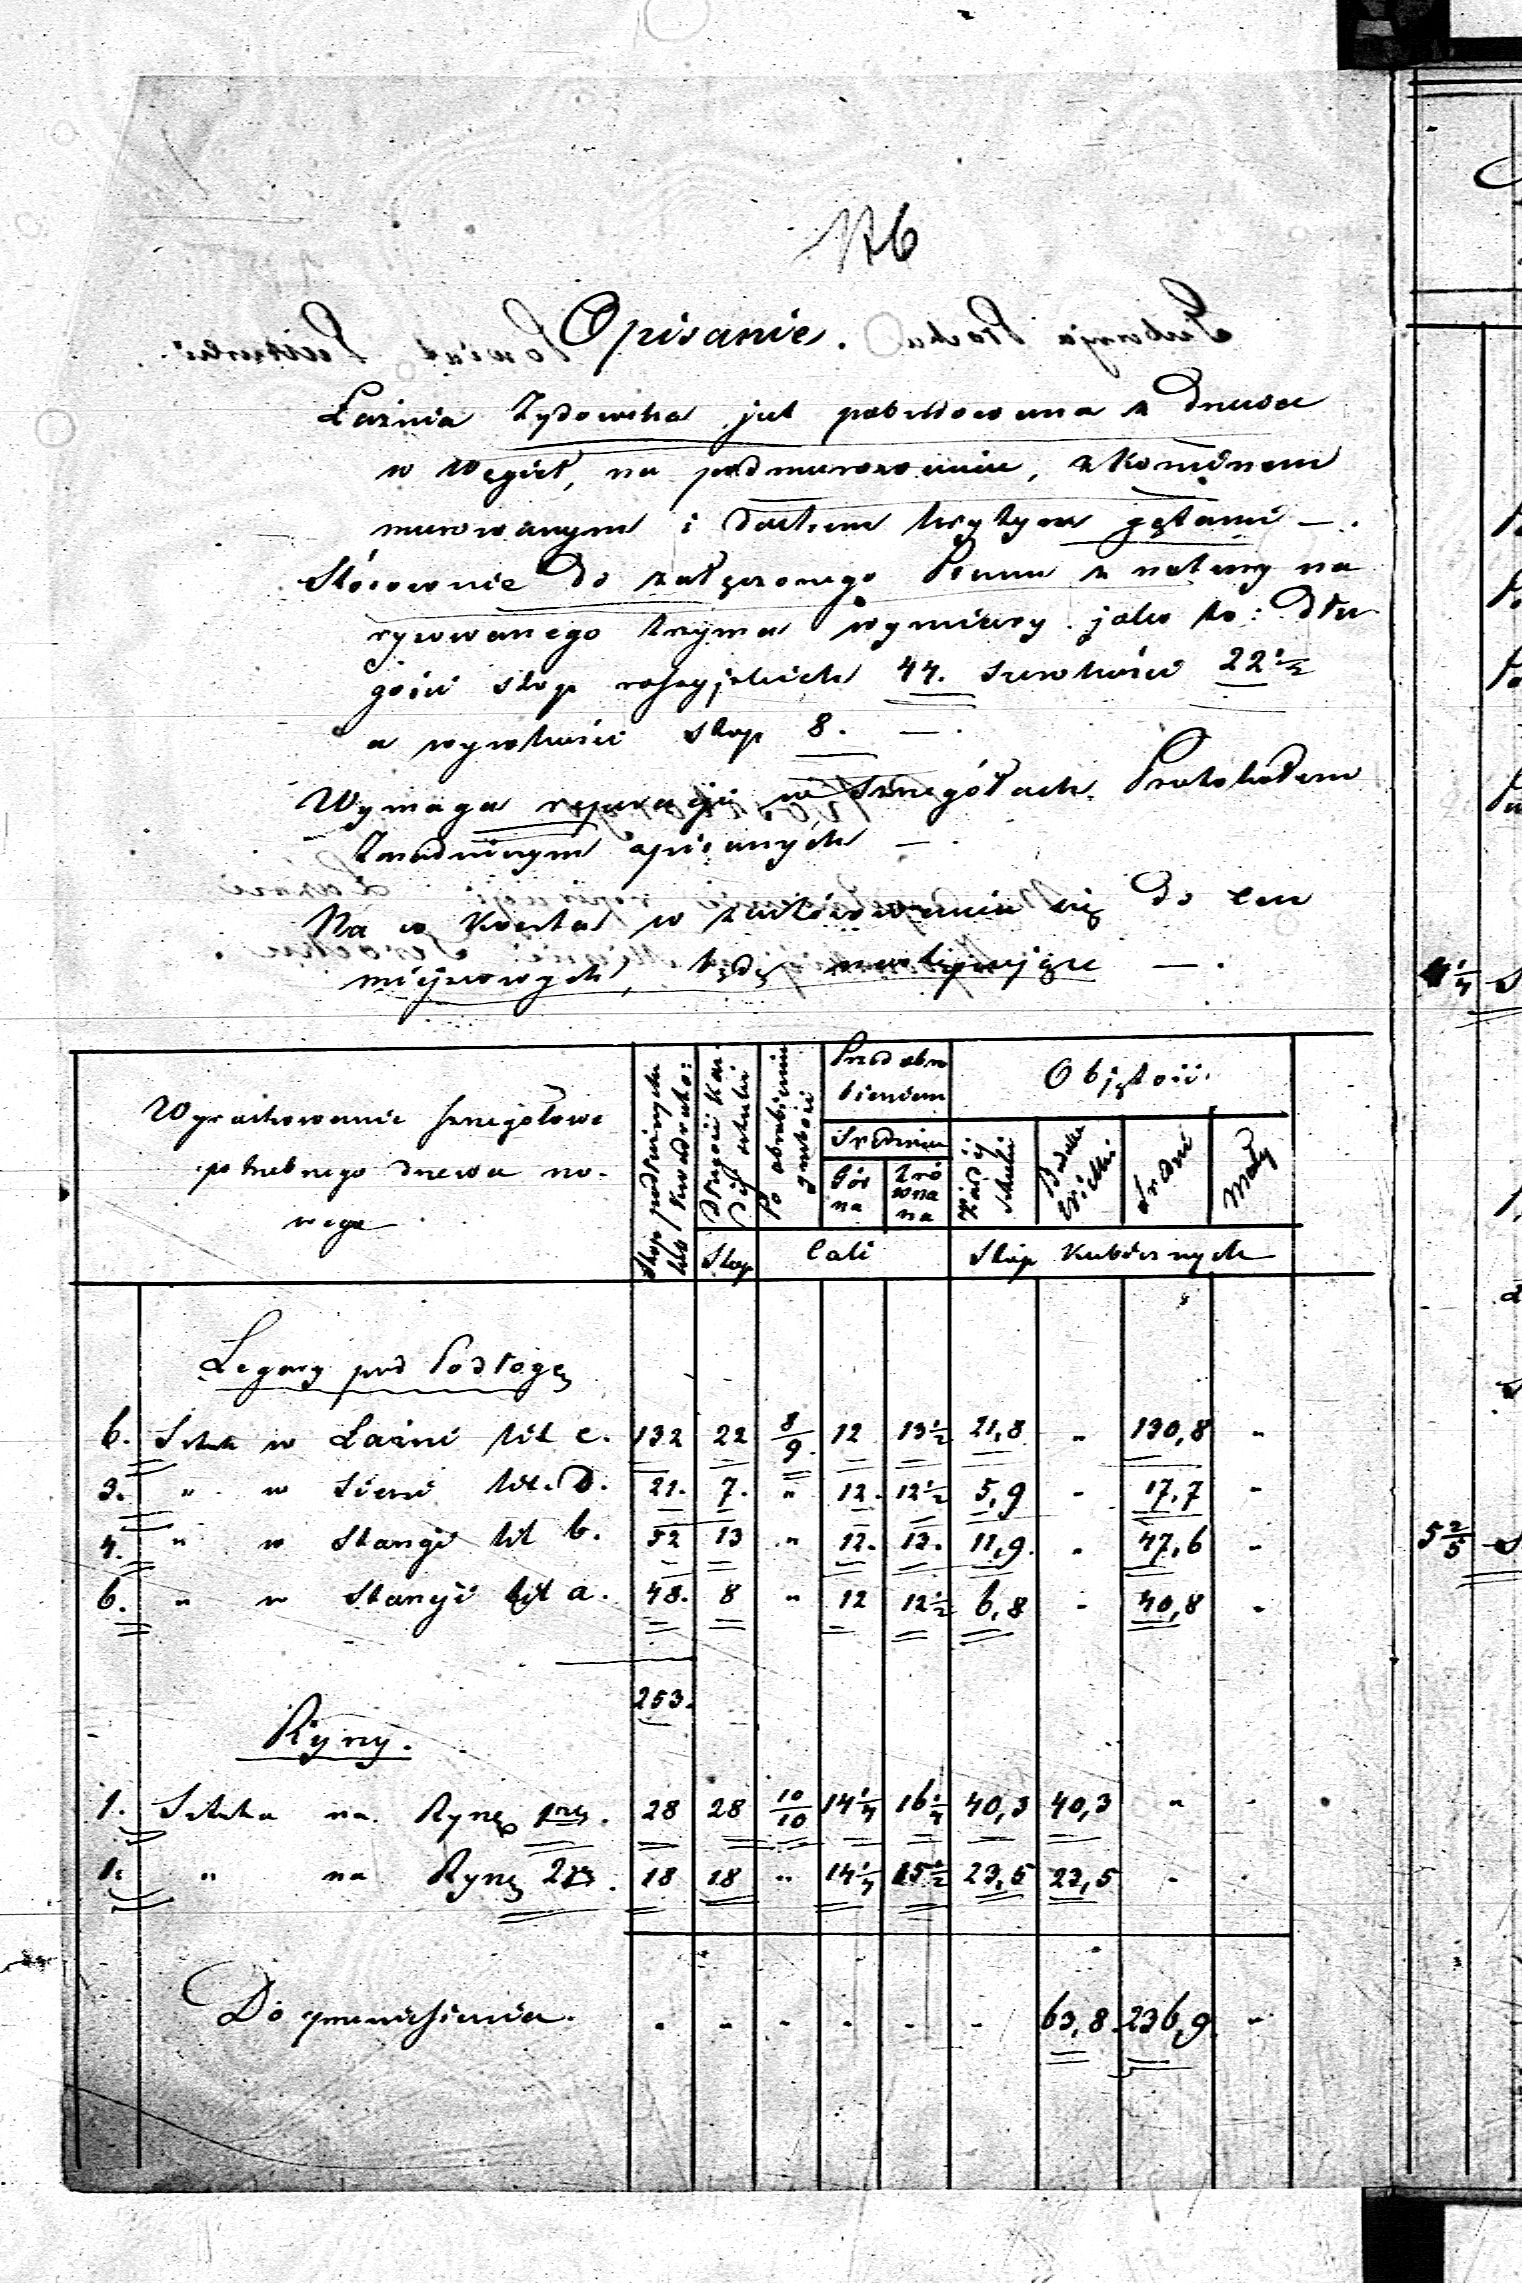 Opisanie.
Łaźnia Żydowska jest pobudowana z Drzewa
w Węgieł, na podmurowaniu, z Kominem
murowanym i dachem krytym gątami —.
Stósownie do załączonego Planu z natury na
rysowanego trzyma wymiary jako to: Dłu
gości stop rossyjskich 44. szerokości 22 1/2
a wysokości stop 8. —.
Wymaga reparacji w szczegółach Protokołem
Zmadniczym opisanych —.
Na co Koszta w zastósowaniu się do Cen
miejscowych, będą następujące —.
Wyrachowanie szczegółowe
potrzebnego drzewa no-
wego
Stop
Po obrobieniu
grubości
Przed obro
bieniem
Średnica
Gór
na
Zró
wna
na
Cali
Objętość.
Każdéj
sztuki
Wielki
Średni
Mały
Stóp Kubicznych
Legary pod Podłogę
6. Sztuk w Łaźni lit c. 132 22 8/9 12 13 1/2 21,8 " 130,8 "
3. " w Sieni lit. D. 21. 7. " 12. 12 1/2 5,9 - 17,7 -
4. " w Stancji lit b. 52 13 " 12. 13. 11,9. - 47,6 -
6. " w Stancji lit a. 48. 8 " 12 12 1/2 6,8 - 40,8 -
253.
Ryny.
1. Sztuka na Rynę 1szą. 28 28 10/10 14 1/4 16 1/4 40,3 40,3 " -
1. " na Rynę 2gą. 18 18 " 14 1/4 15 1/2 23,5 23,5 - -
Do przeniesienia. - - - - - - 63,8 236,9 -
4 1/4
5 2/5